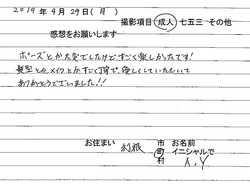 2019年 4月 29日(月)
撮影項目 成人 七五三 その他
感想をお願いします
ポーズとか大変でしたけどすごく楽しかったです!
髪型とか、メイクとかすごく丁寧で、優しくしていただいて
ありがとうございました!!
お住まい 利根 市町村 お名前 イニシャルで A.Y